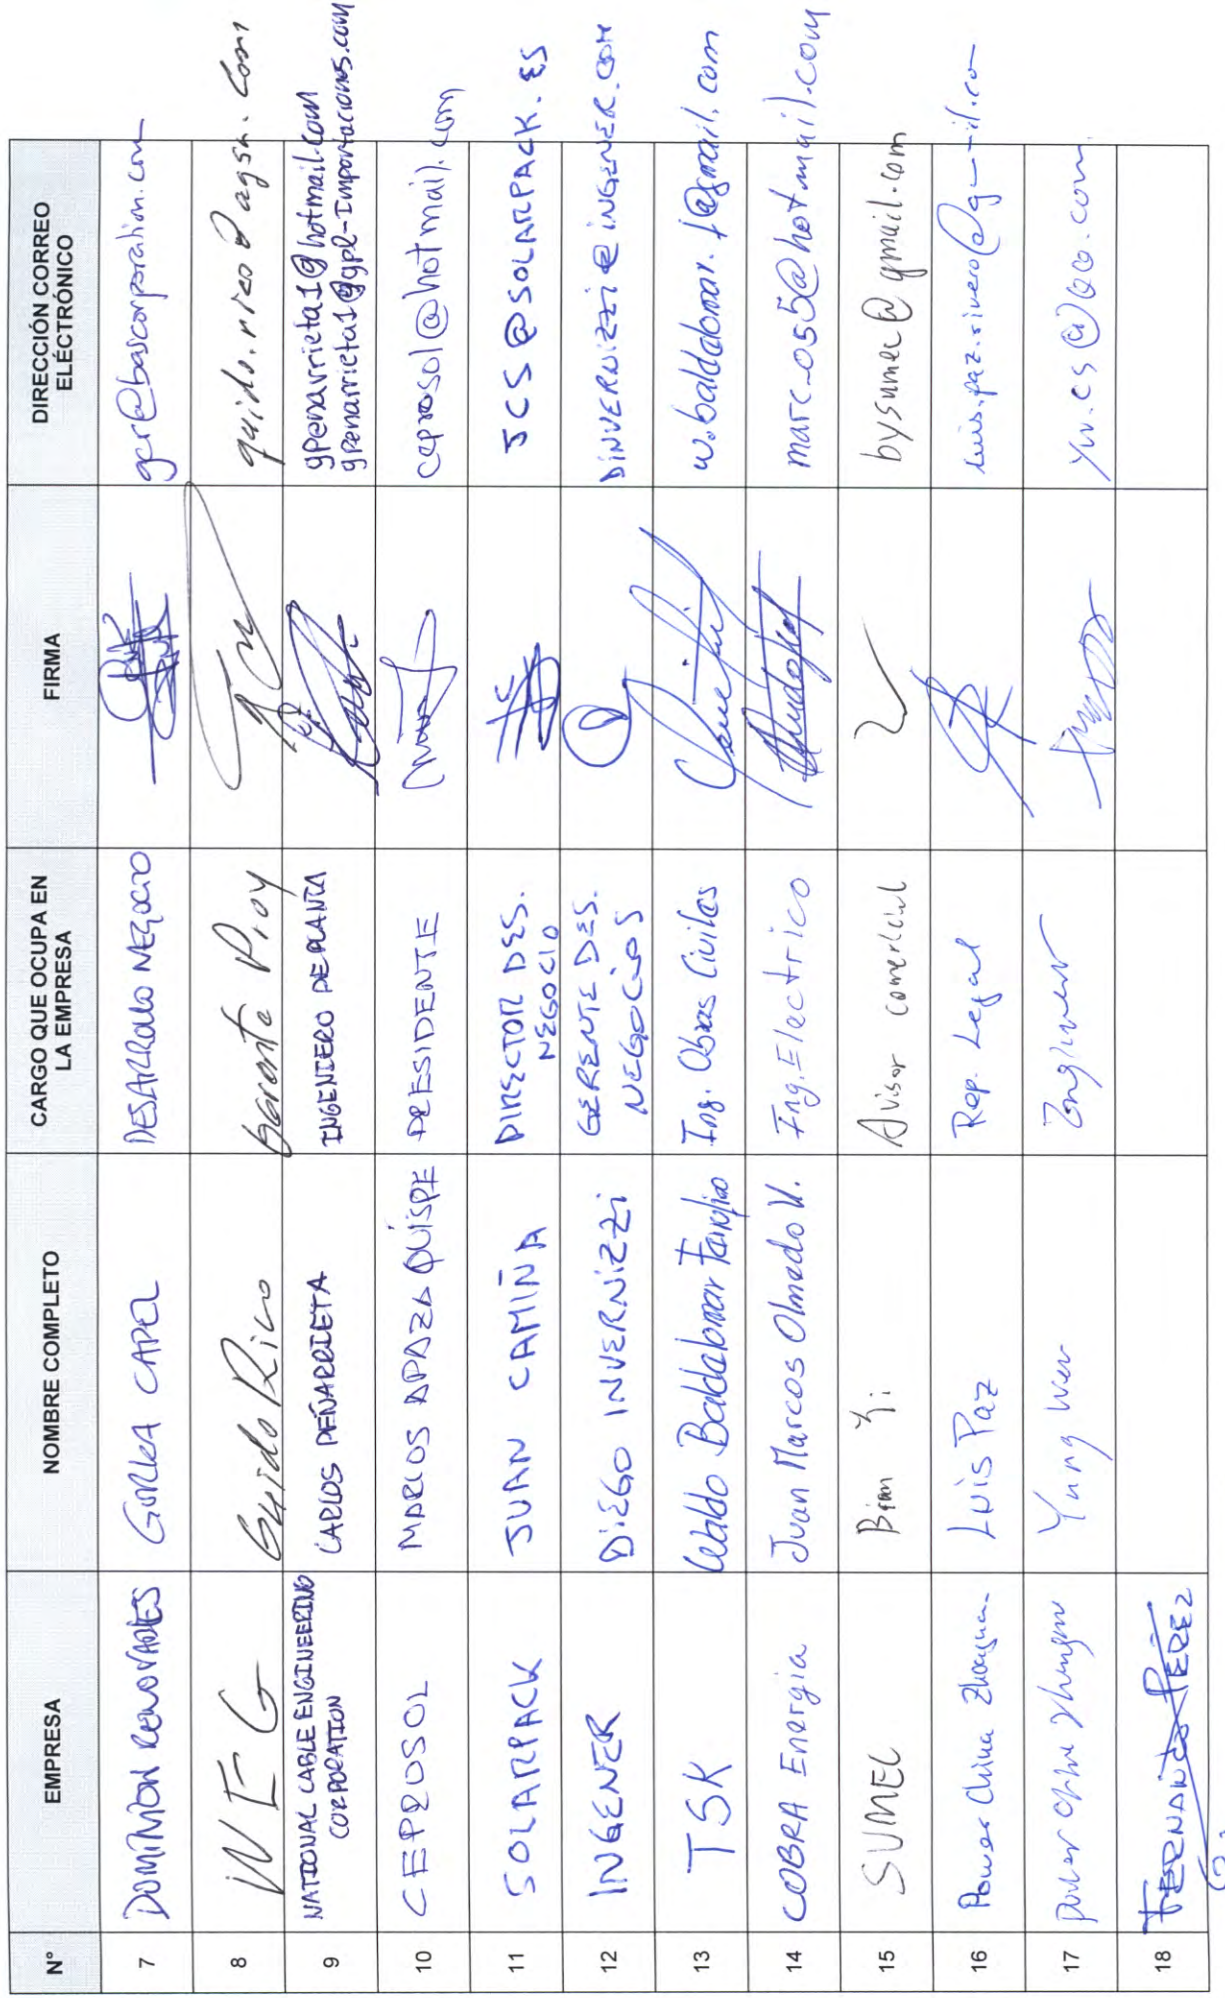 N° EMPRESA NOMBRE COMPLETO CARGO QUE OCUPA EN LA EMPRESA FIRMA DIRECCIÓN CORREO ELÉCTRÓNICO
7 DOMINION RENOVABLES GORKA CAPEL DESARROLLO NEGOCIO gcr@basicorporation.com
8 WEG Guido Rico Gerente Proy guido.rico@agsa.com
9 NATIONAL CABLE ENGINEERING CORPORATION CARLOS PEÑARRIETA INGENIERO DE PLANTA gpenarrieta1@hotmail.com
gpenarrieta1@gpl-Importaciones.com
10 CEPROSOL MARCOS APAZA QUISPE PRESIDENTE ceprosol@hotmail.com
11 SOLARPACK JUAN CAMIÑA DIRECTOR DES. NEGOCIO JCS@SOLARPACK.ES
12 INGENER DIEGO INVERNIZZI GERENTE DES. NEGOCIOS DINVERNIZZI@INGENER.COM
13 TSK Waldo Baldomar Ing. Obras Civiles w.baldomar.f@gmail.com
14 COBRA Energia Juan Marcos Olmedo V. Ing. Electrico marc_055@hotmail.com
15 SUMEC Bian Yi Avisor comercial bysumec@gmail.com
16 Power China Luis Paz Rep. Legal
17 Yung Wen
18 FERNANDO PEREZ